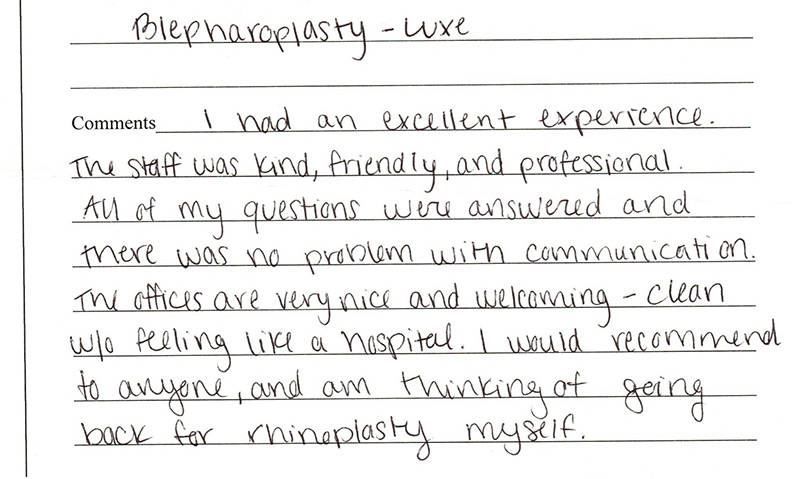 Blepharoplasty - Luxe
Comments I had an excellent experience.
The staff was kind, friendly, and professional.
All of my questions were answered and
there was no problem with communication.
The offices are very nice and welcoming - clean
w/o feeling like a hospital. I would recommend
to anyone, and am thinking of going
back for rhinoplasty myself.